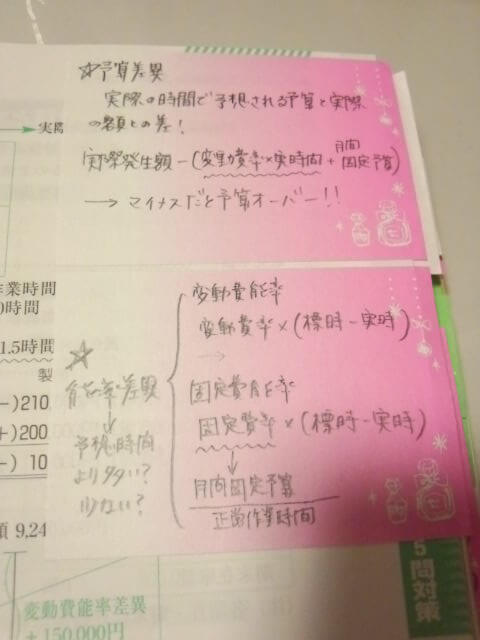 ☆予算差異
実際の時間で予想される予算と実際
の額との差!
実際発生額-(変動費率×実時間+月間固定予算)
→ マイナスだと予算オーバー!!
→実際
作業時間
0時間
1.5時間
製
-)210
+)200
-) 10
額 9,24
☆
能率差異
↓
予想時間
より多い?
少ない?
変動費能率
変動費率×(標時-実時)
→
固定費能率
固定費率×(標時-実時)
↓
月間固定予算
正常作業時間
変動費能率差異
+150,000円
5問対策